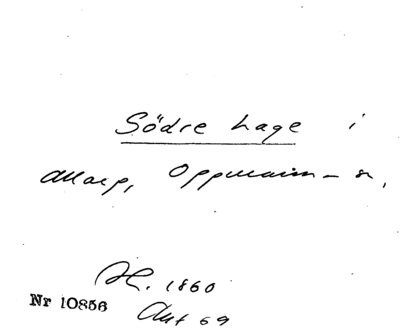 Södre hage i
Allarp, Oppmanna-sn,
Af. 1860
Nr 10856
Akt 69